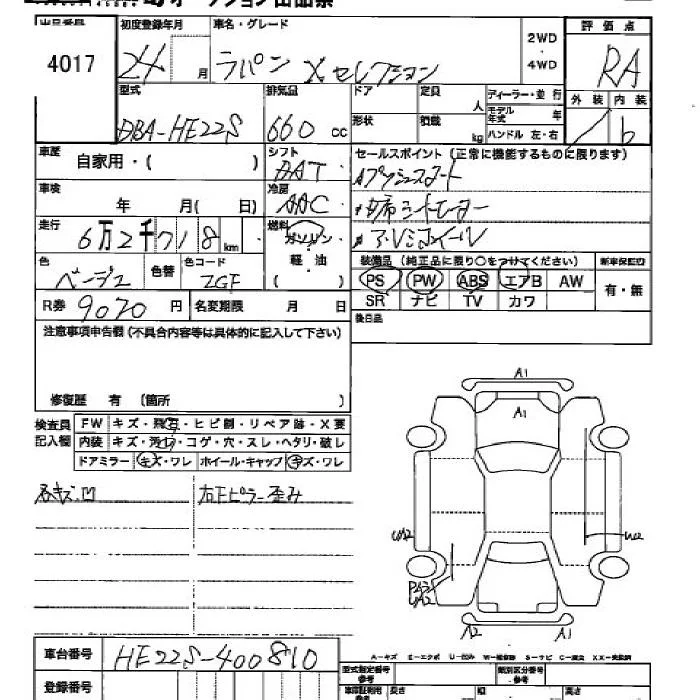 オークション出品票
出品番号 初度登録年月 車名・グレード 2WD・4WD 評価点
4017 24 月 ラパン Xセレクション RA
型式 排気品 ドア 定員 人 ディーラー・並行 外装 内装
モデル年式 年
DBA-HE22S 660 cc 形状 積載 kg ハンドル 左・右 b
車歴 自家用・( ) シフト セールスポイント (正常に機能するものに限ります)
AT プッシュスタート
車検 年 月( 日) 冷房 AAC シートヒーター
走行 6万2千718km 燃料 ガソリン アルミホイール
軽・油
( )
色 ベージュ 色替 色コード ZGF 装備品 (純正品に限り○をつけてください) 新車保証書
PS PW ABS エアB AW 有・無
SR ナビ TV カワ
R券 9070 円 名変期限 月 日 後日品
注意事項申告欄(不具合内容等は具体的に記入して下さい)
修復歴 有 (箇所 )
検査員記入欄 FW キズ・飛石・ヒビ割・リペア跡・X要
内装 キズ・汚れ・コゲ・穴・スレ・ヘタリ・破レ
ドアミラー キズ・ワレ ホイール・キャップ キズ・ワレ
キズ.凹 右Fピラー歪み
A1
A1
UA2
W2
UA2
A2 A1
A-キズ E-エクボ U-凹み W-補修跡 S-サビ C-腐食 XX-交換済
車台番号 HE22S-400810
型式指定番号 類別区分番号
登録番号 長さ 幅 高さ